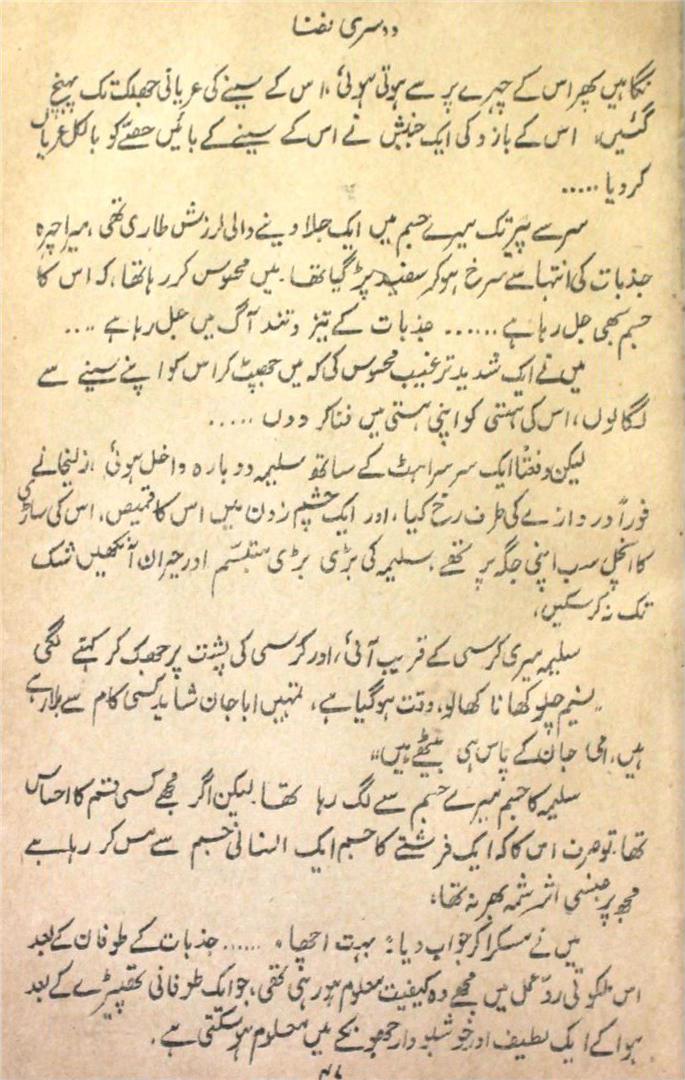 دوسری فضا
نگاہیں پھر اس کے چہرے پر سے ہوتی ہوئی، اس کے سینے کی عریانی جھلک تک پہنچ
گئیں، اس کے بازو کی ایک جنبش نے اس کے سینے کے بائیں حصّے کو بالکل عریاں
کر دیا .....
سر سے پیر تک میرے جسم میں ایک جلا دینے والی لرزش طاری تھی، میرا چہرہ
جذبات کی انتہا سے سرخ ہو کر سفید پڑ گیا تھا۔ میں محسوس کر رہا تھا، کہ اس کا
جسم بھی جل رہا ہے ...... جذبات کے تیز و تند آگ میں جل رہا ہے ....
میں نے ایک شدید ترغیب محسوس کی کہ میں جھپٹ کر اس کو اپنے سینے سے
لگا لوں، اس کی ہستی کو اپنی ہستی میں فنا کر دوں .....
لیکن دفعتاً ایک سرسراہٹ کے ساتھ سلیمہ دوبارہ داخل ہوئی، زلیخا نے
فوراً دروازے کی طرف رخ کیا، اور ایک چشم زدن میں اس کا قمیص، اس کی ساڑی
کا آنچل سب اپنی جگہ پر تھے، سلیمہ کی بڑی بڑی متبسّم اور حیران آنکھیں شک
تک نہ کر سکیں،
سلیمہ میری کرسی کے قریب آئی، اور کرسی کی پشت پر جھک کر کہنے لگی
"نسیم چلو کھانا کھا لو، وقت ہو گیا ہے، تمہیں ابا جان شاید کسی کام سے بلا رہے
ہیں، امی جان کے پاس ہی بیٹھے ہیں"
سلیمہ کا جسم میرے جسم سے لگ رہا تھا۔ لیکن اگر مجھے کسی قسم کا احساس
تھا۔ تو صرف اس کا کہ ایک فرشتے کا جسم ایک انسانی جسم سے مس کر رہا ہے
مجھ پر جنسی اثر شمہ بھر نہ تھا،
میں نے مسکرا کر جواب دیا: بہت اچھا، ...... جذبات کے طوفان کے بعد
اس ملکوتی ردّ عمل میں مجھے وہ کیفیت معلوم ہو رہی تھی، جو ایک طوفانی تھپیڑے کے بعد
ہوا کے ایک لطیف اور خوشبودار جھونکے میں معلوم ہو سکتی ہے۔